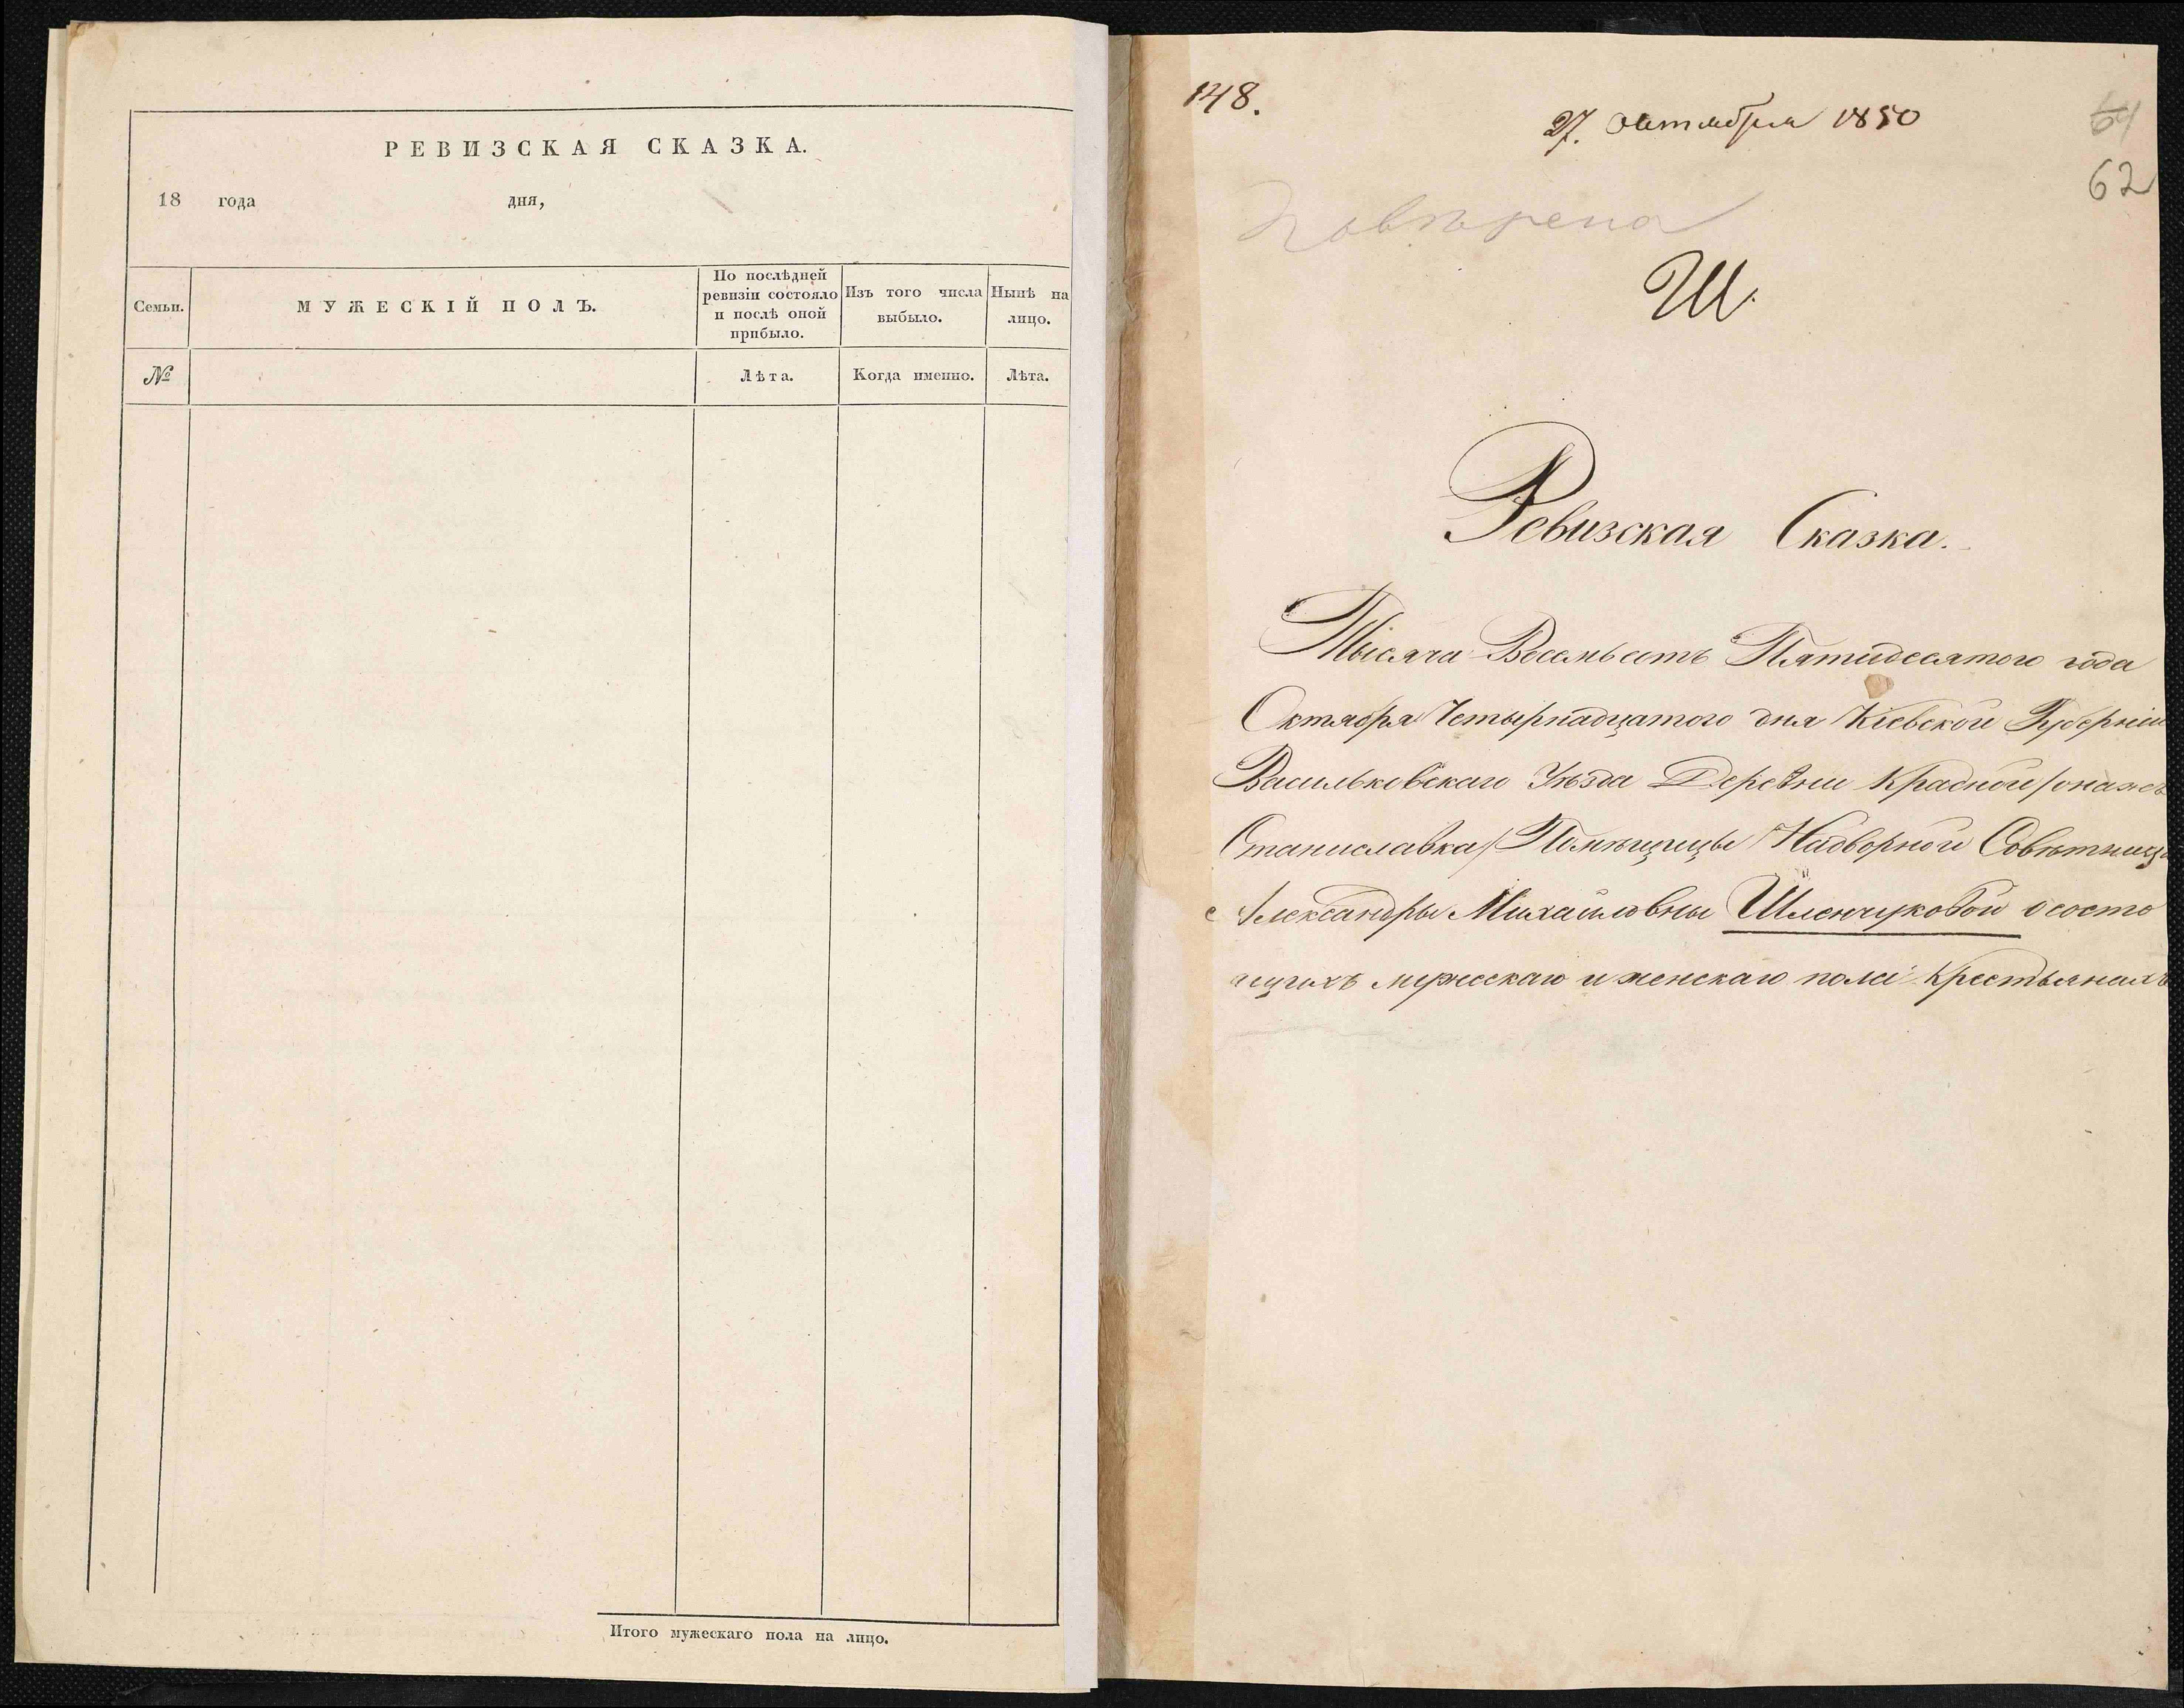 РЕВИЗСКАЯ СКАЗКА.
18 года дня,
Семьи.
МУЖЕСКІЙ ПОЛЪ.
По послѣдней
ревизіи состояло
и послѣ оной
прибыло.
Изъ того числа
выбыло.
Нынѣ на
лицо.
№
Лѣта.
Когда именно.
Лѣта.
Итого мужескаго пола на лицо.
148.
27. октября 1850
64
62
Повѣрена
Ш.
Ревизская Сказка.
Тысяча Восемьсотъ Пятидесятого года
Октября Четырнадцатого дня Кіевской Губерніи
Васильковскаго Уѣзда Деревни Красной /онаже
Станиславка/ Помѣщицы Надворной Совѣтницы
Александры Михайловны о состо
ящихъ мужескаго и женскаго пола крестьянахъ